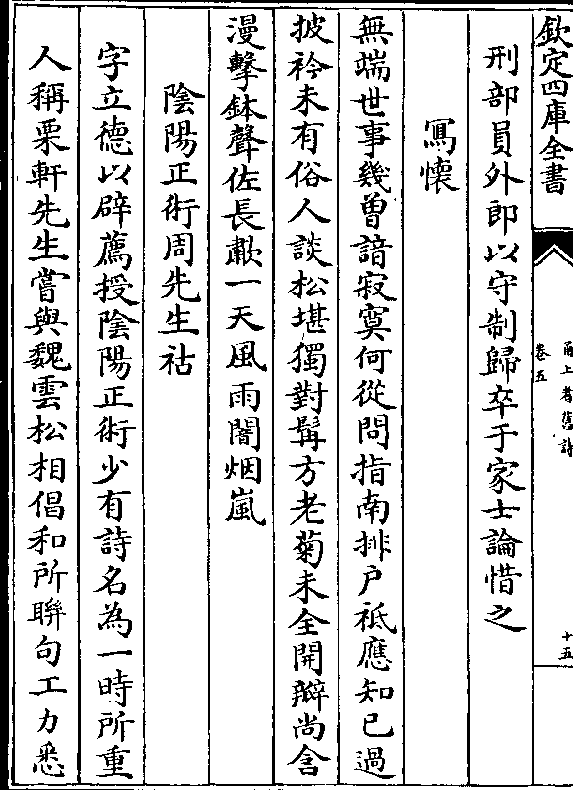 欽定四庫全書
甬上耆舊詩
卷五
十五
刑部員外郎以守制歸卒于家士論惜之
冩懷
無端世事幾曽諳寂寞何從問指南排户祗應知已過
披衿未有俗人談松堪獨對髯方老菊未全開瓣尚含
漫擊鉢聲佐長歗一天風雨闇烟嵐
隂陽正術周先生祜
字立德以辟薦授隂陽正術少有詩名為一時所重
人稱栗軒先生嘗與魏雲松相倡和所聨句工力悉